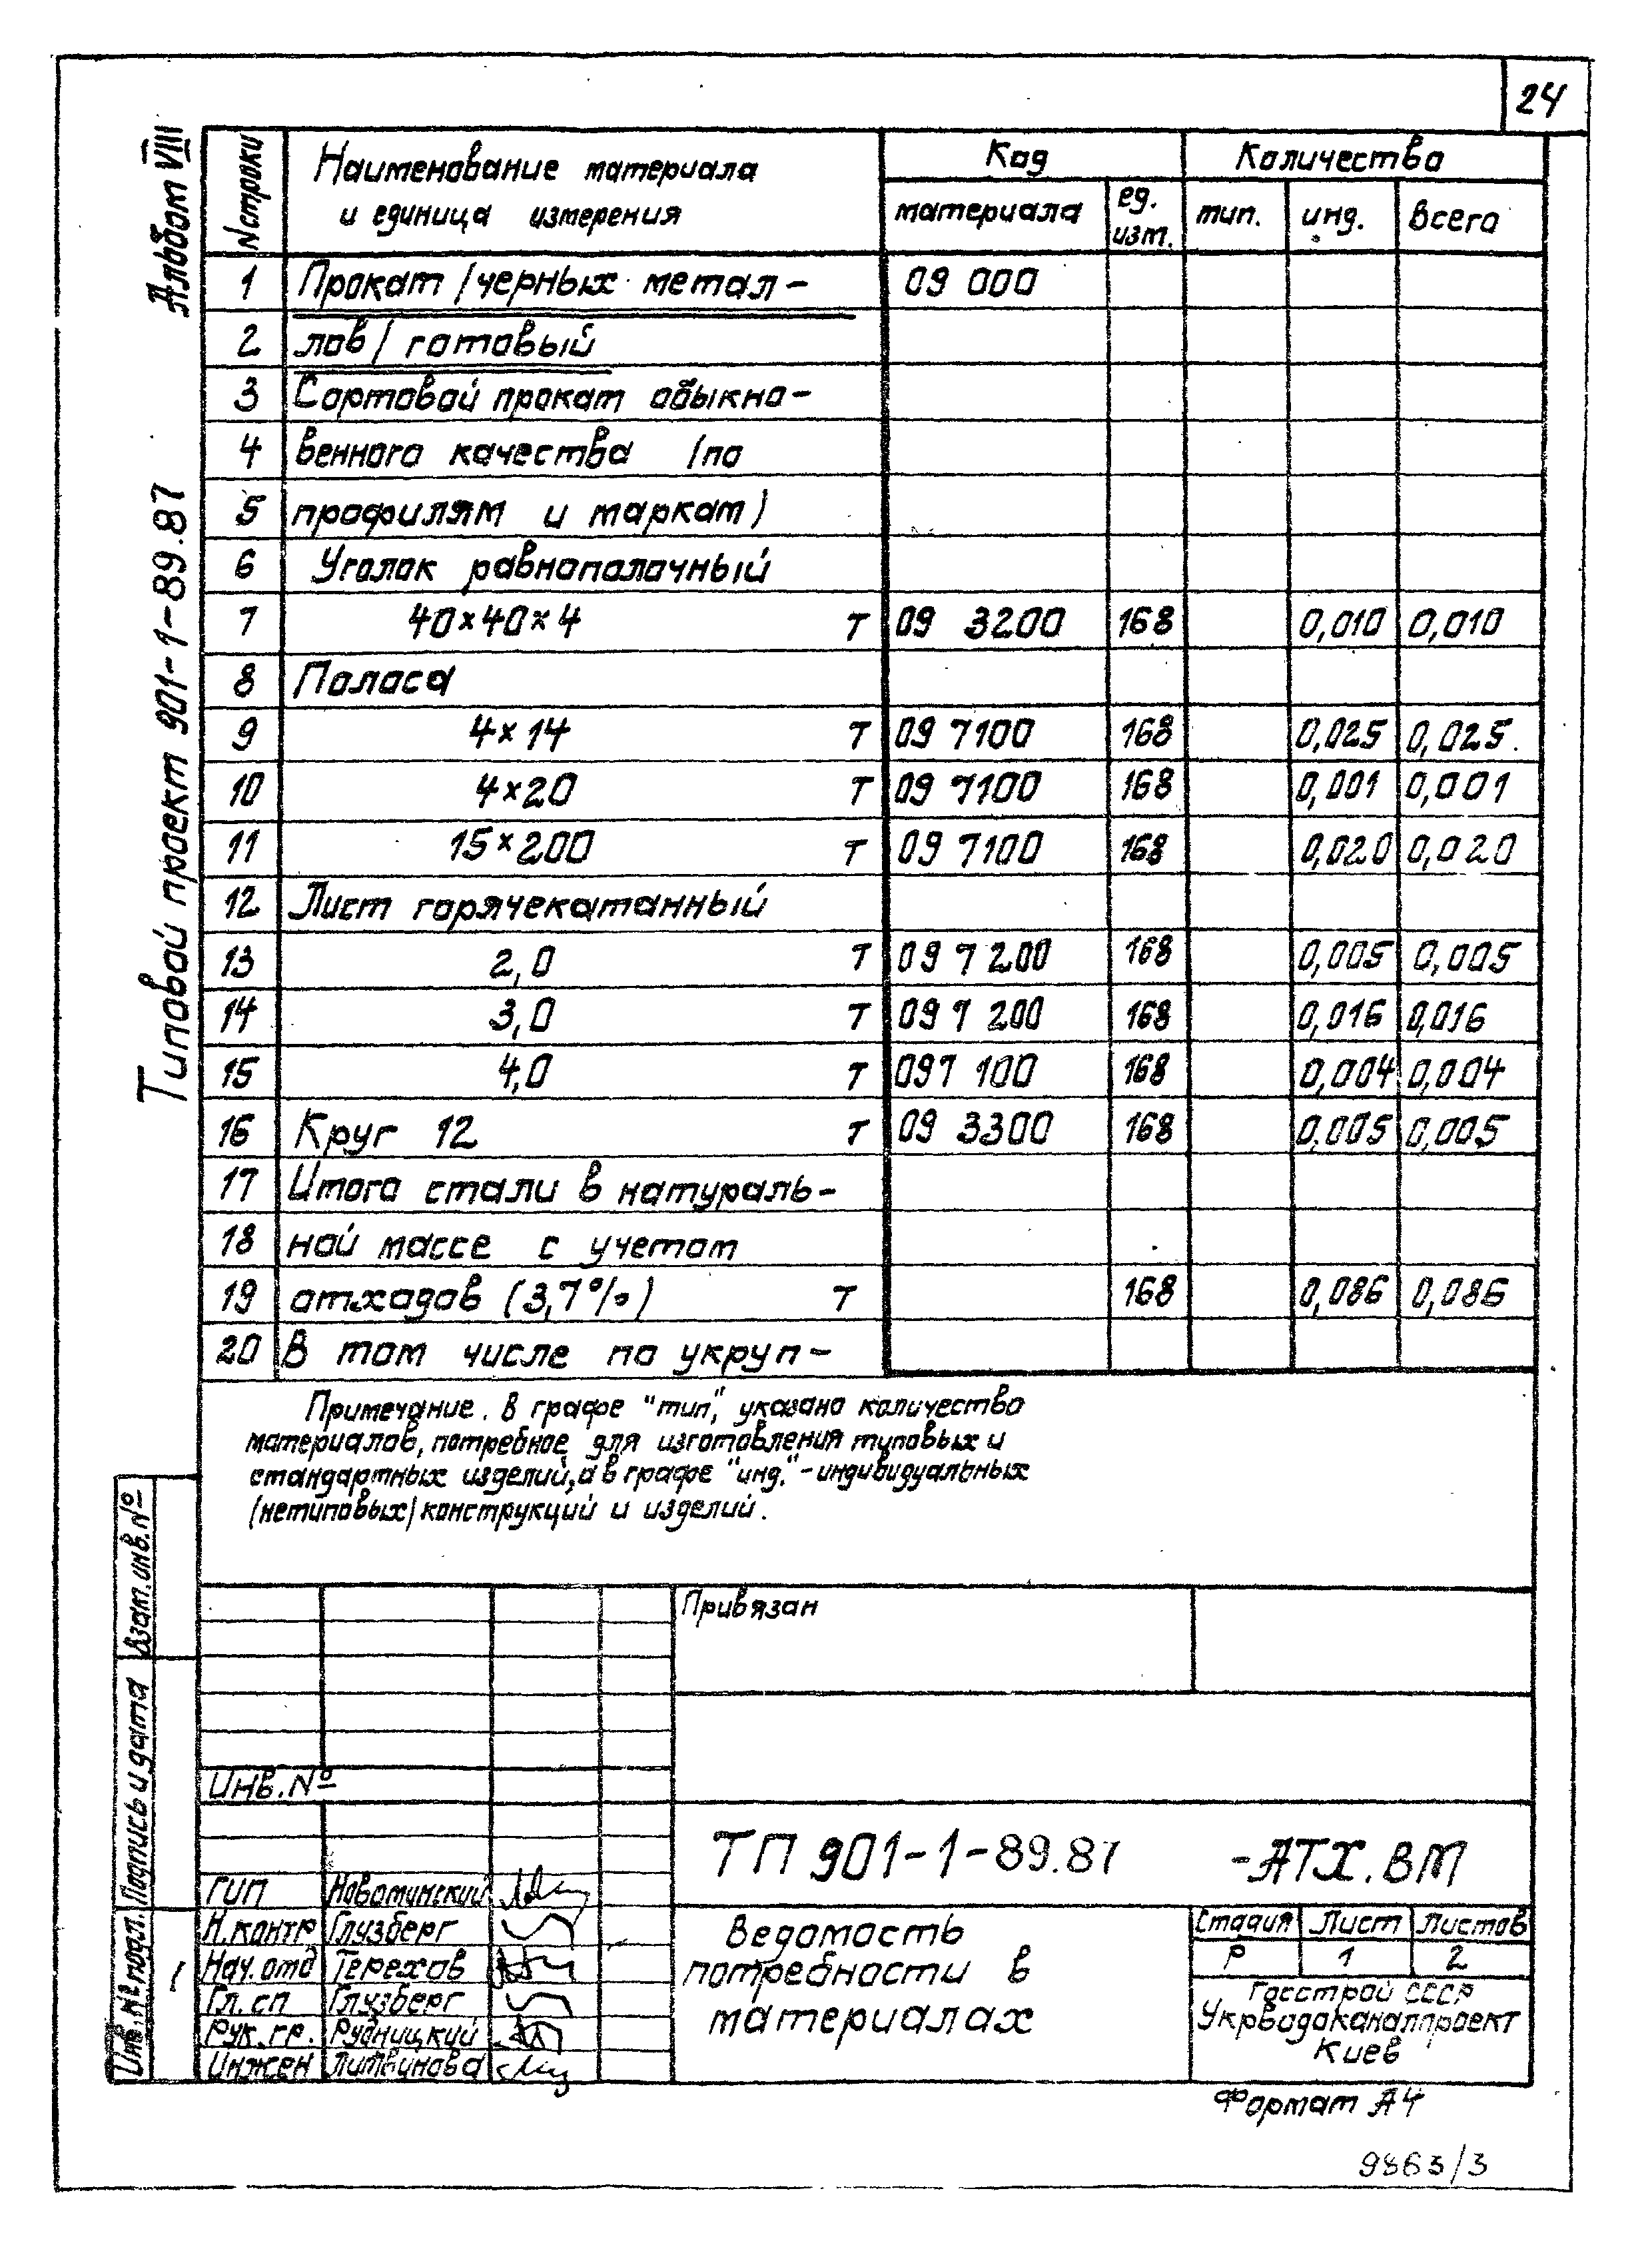 24
Альбом VIII
Типовой проект 901-1-89.87
№ строки Наименование материала и единица измерения Код Количества
материала ед. изм. тип. инд. всего
1 Прокат /черных метал- 09 000
2 лов/ готовый
3 Сортовой прокат обыкно-
4 венного качества (по
5 профилям и маркам)
6 Уголок равнополочный
7 40×40×4 т 09 3200 168 0,010 0,010
8 Полоса
9 4×14 т 09 7100 168 0,025 0,025
10 4×20 т 09 7100 168 0,001 0,001
11 15×200 т 09 7100 168 0,020 0,020
12 Лист горячекатанный
13 2,0 т 09 7200 168 0,005 0,005
14 3,0 т 09 7 200 168 0,016 0,016
15 4,0 т 097 100 168 0,004 0,004
16 Круг 12 т 09 3300 168 0,005 0,005
17 Итого стали в натураль-
18 ной массе с учетом
19 отходов (3,7%) т 168 0,086 0,086
20 В том числе по укруп-
Примечание. В графе "тип", указано количество
материалов, потребное для изготовления типовых и
стандартных изделий, а в графе "инд." - индивидуальных
(нетиповых) конструкций и изделий.
Привязан
Инв. №
ТП 901-1-89.87 -АТХ.ВМ
ГИП Новоминский
Н.контр Глузберг
Нач.отд Терехов
Гл.сп Глузберг
Рук.гр. Рудницкий
Инжен Литвинова
Ведомость
потребности в
материалах
Стадия Лист Листов
Р 1 2
Госстрой СССР
Укрводоканалпроект
Киев
Взам.инв.№
Подпись и дата
Инв.№ подл.
Формат А4
9863/3